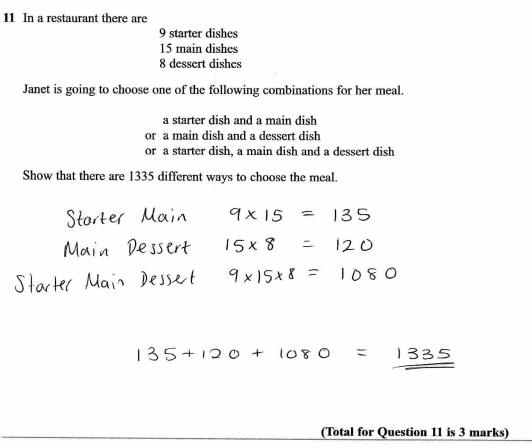 11 In a restaurant there are
9 starter dishes
15 main dishes
8 dessert dishes
Janet is going to choose one of the following combinations for her meal.
a starter dish and a main dish
or a main dish and a dessert dish
or a starter dish, a main dish and a dessert dish
Show that there are 1335 different ways to choose the meal.
Starter Main 9 × 15 = 135
Main Dessert 15 × 8 = 120
Starter Main Dessert 9 × 15 × 8 = 1080
135 + 120 + 1080 = 1335
(Total for Question 11 is 3 marks)